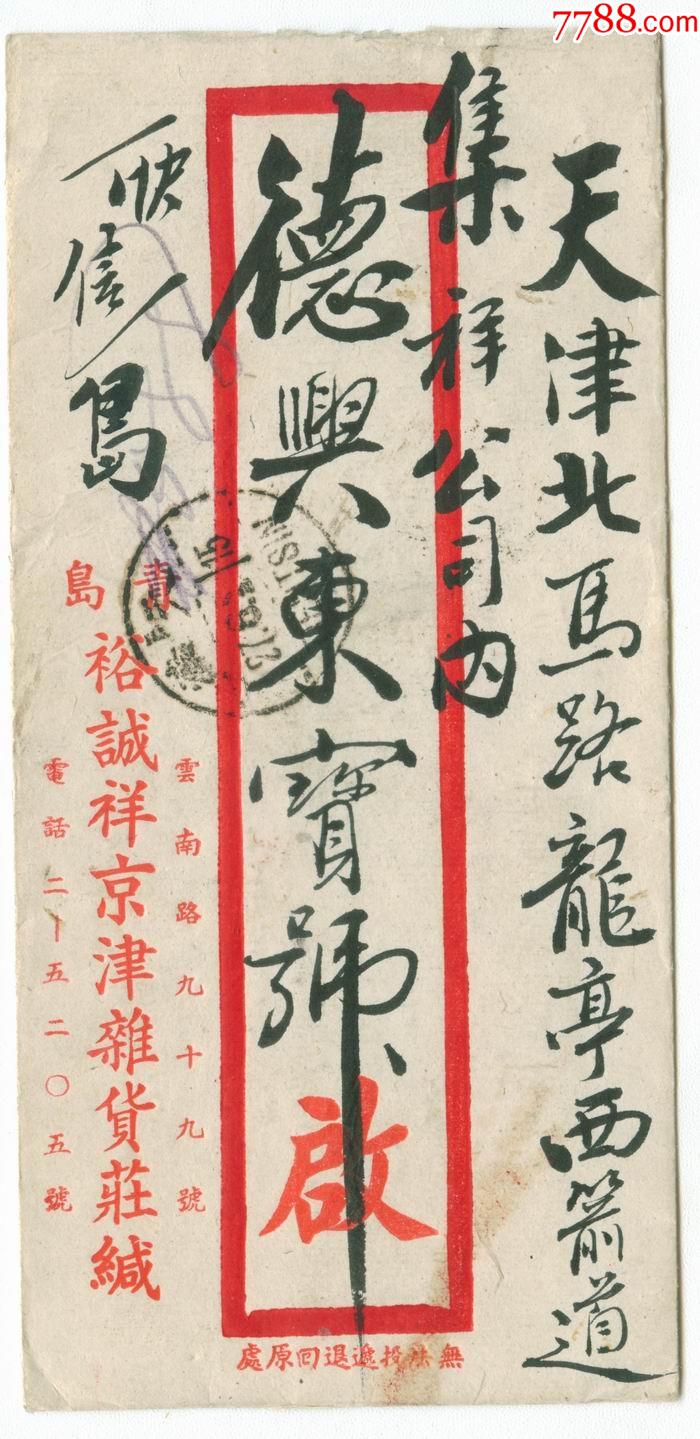 7788.com
天津北馬路龍亭西箭道
集祥公司内
德興東寳號
啟
快信
島
青島
雲南路九十九號
裕誠祥京津雜貨莊緘
電話二—五二〇五號
無法投遞退回原處